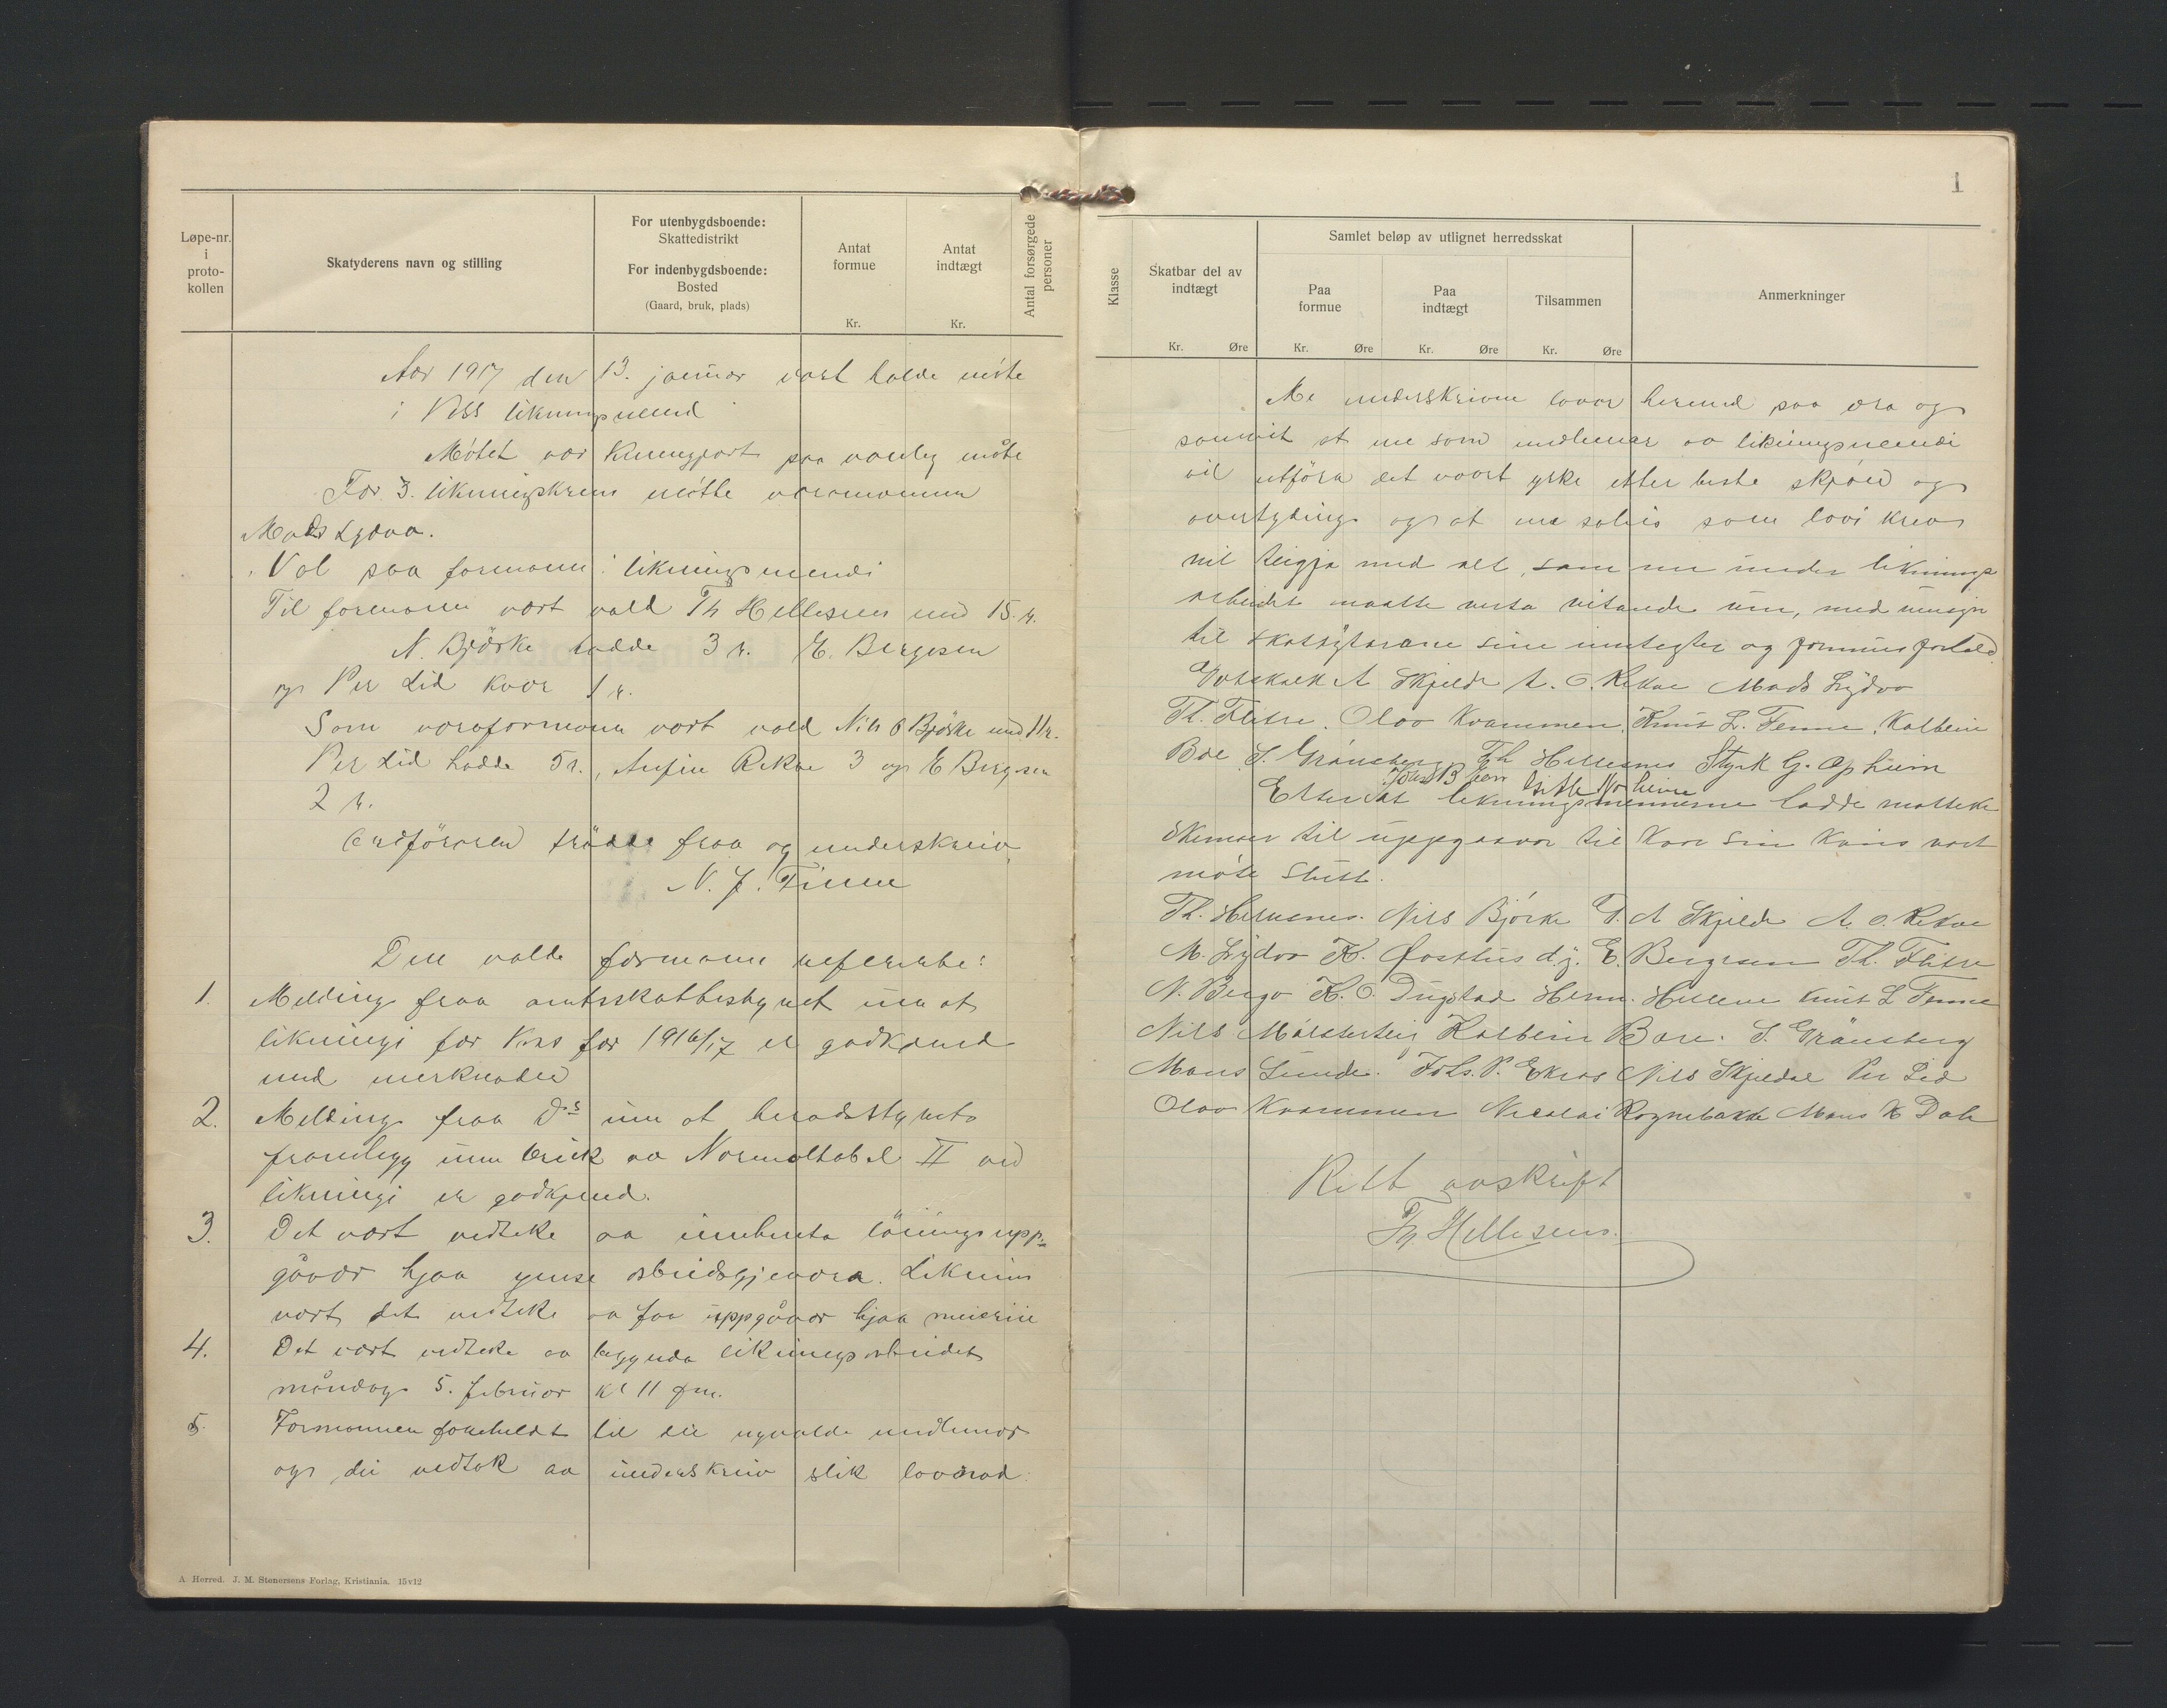 Løpe-nr. i proto-kollen
Skatyderens navn og stilling
For utenbygdsboende:
Skattedistrikt
For indenbygdsboende:
Bosted
(Gaard, bruk, plads)
Antat formue
Kr.
Antat indtægt
Kr.
Antal forsørgede personer
Aar 1917 den 13. januar vart halde møte
i Voss likningsnemd
Møtet var kunngjort paa vanleg måte
For 3. likningskrins møtte varamannen
Mads Lydvo.
Val paa formann i likningsnemdi
Til formann vart vald Th Hellesnes med 15 r.
N. Bjørke hadde 3 r. E. Bergesen
og Per Lid kvar 1 r.
Som varaformann vart vald Nils O Bjørke med 11 r.
Per Lid hadde 5 r., Anfin Rekve 3 og E Bergesen
2 r.
Ordföraren trådde fraa og underskreiv
N. J. Finne
Den valde formann refererte:
1. Melding fraa amtsskattestyret um at
likningi for Voss for 1916/17 er godkjend
med merknader
2. Melding fraa Ds um at heradsstyrets
framlegg um bruk av Normaltabel II ved
likningi er godkjend.
3. Det vart vedteke aa innhenta löningsupp-
gåvor hjaa ymse arbeidsgjevara. Likeins
vart det vedteke aa faa uppgåvor hjaa meierii
4. Det vart vedteke aa begynda likningsarbeidet
måndag 5. februar kl 11 fm.
5. Formannen foreheldt til dei nyvalde medlemar
og dei vedtok aa underskriv slik lovnad:
A Herred. J. M. Stenersens Forlag, Kristiania. 15v12
1
Klasse
Skatbar del av indtægt
Kr. Øre
Samlet beløp av utlignet herredsskat
Paa formue
Kr. Øre
Paa indtægt
Kr. Øre
Tilsammen
Kr. Øre
Anmerkninger
Me underskrivne lovar hermed paa æra og
samvit at me som medlemar av likningsnemdi
vil utföra det vaart yrke etter beste skjön og
overtyding og at me soleis som lovi krev
vil teigja med alt, som me under liknings
arbeidet maatte verta vitande um, med umsyn
til skatteytarane sine inntegter og formuesforhold
Gotskalk A Skjelde A. O. Rekve Mads Lydvo
Th. Flitre. Olav Kvammen. Knut L. Tenne. Kolbein
Boe S. Grånsberg Th Hellesnes Styrk G. Opheim
Etter at likningsmennerne hadde motteke
skemaer til uppgaavor til kvar sin krins vart
møte slutt.
Th. Hellesnes. Nils Bjørke G. A Skjelde A. O. Rekve
M. Lydvo K. Qvasthus d.y. E. Bergesen Th. Flitre
N. Bergo K. O. Dugstad Herm. Hellene Knut L Tenne
Nils Mölsterteig Kolbein Boe. S. Grånsberg
Mons Sunde. Johs. P. Ekras Nils Skjeldal Per Lid
Olav Kvammen Nicolai Rognebakke Mons K Dale
Rett avskrift
Th Hellesnes.